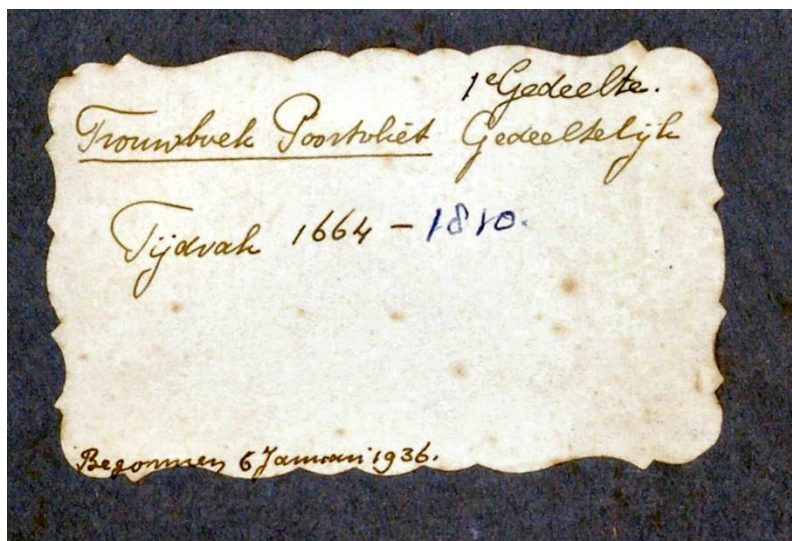 1e Gedeelte.
Trouwboek Poortvliet Gedeeltelijk
Tijdvak 1664 – 1810.
Begonnen 6 Januari 1936.